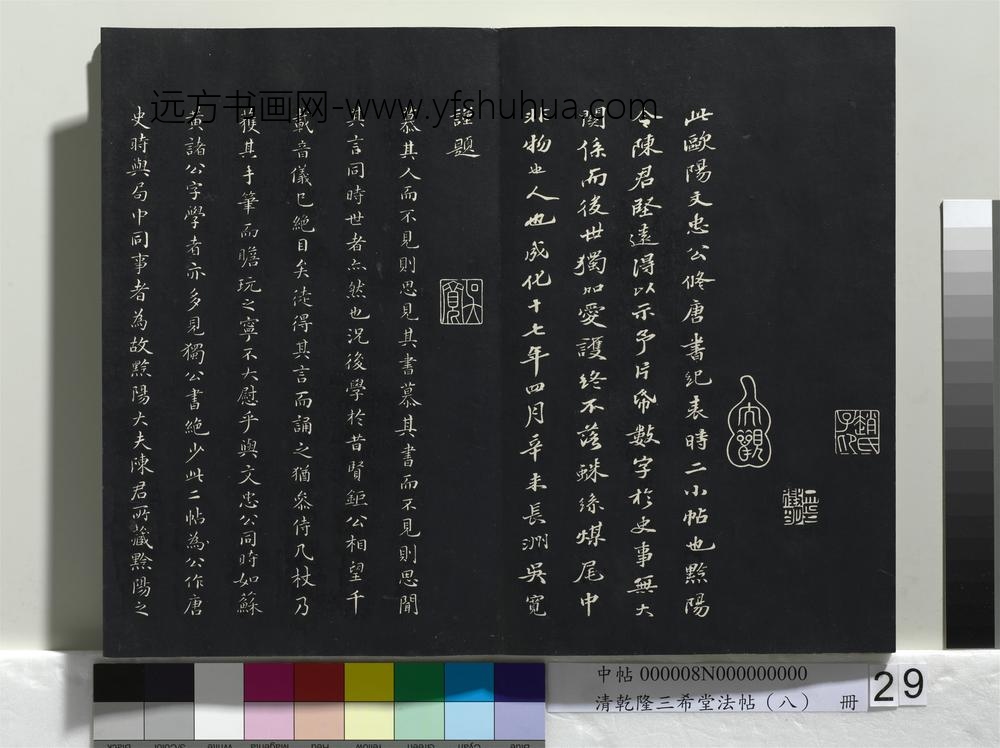 此歐陽文忠公修唐書紀表時二小帖也黟陽
令陳君堅遠得以示予片紙數字於史事無大
關係而後世獨加愛護終不落蛛絲煤尾中
非物也人也成化十七年四月辛未長洲吳寬
謹題
慕其人而不見則思見其書慕其書而不見則思聞
其言同時世者亦然也況後學於昔賢鉅公相望千
載音儀已絕目矣徒得其言而誦之猶參侍几杖乃
獲其手筆而瞻玩之寧不大慰乎與文忠公同時如蘇
黃諸公字學者亦多見獨公書絕少此二帖為公作唐
史時與局中同事者為故黟陽大夫陳君所藏黟陽之
远方书画网-www.yfshuhua.com
中帖 000008N000000000
清乾隆三希堂法帖（八） 冊
29